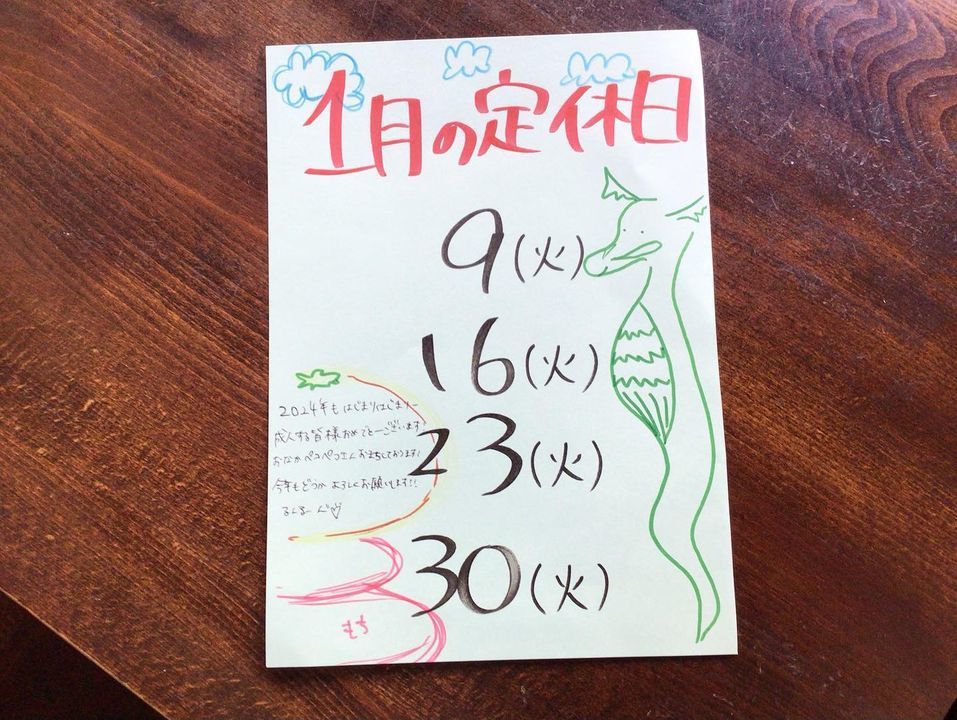 1月の定休日
9(火)
16(火)
23(火)
30(火)
2024年もはじまりはじまりー
成人する皆様おめでとーございます
おなかペコペコさんおまちしております!
今年もどうか よろしくお願いします!!
るんるーん
もち